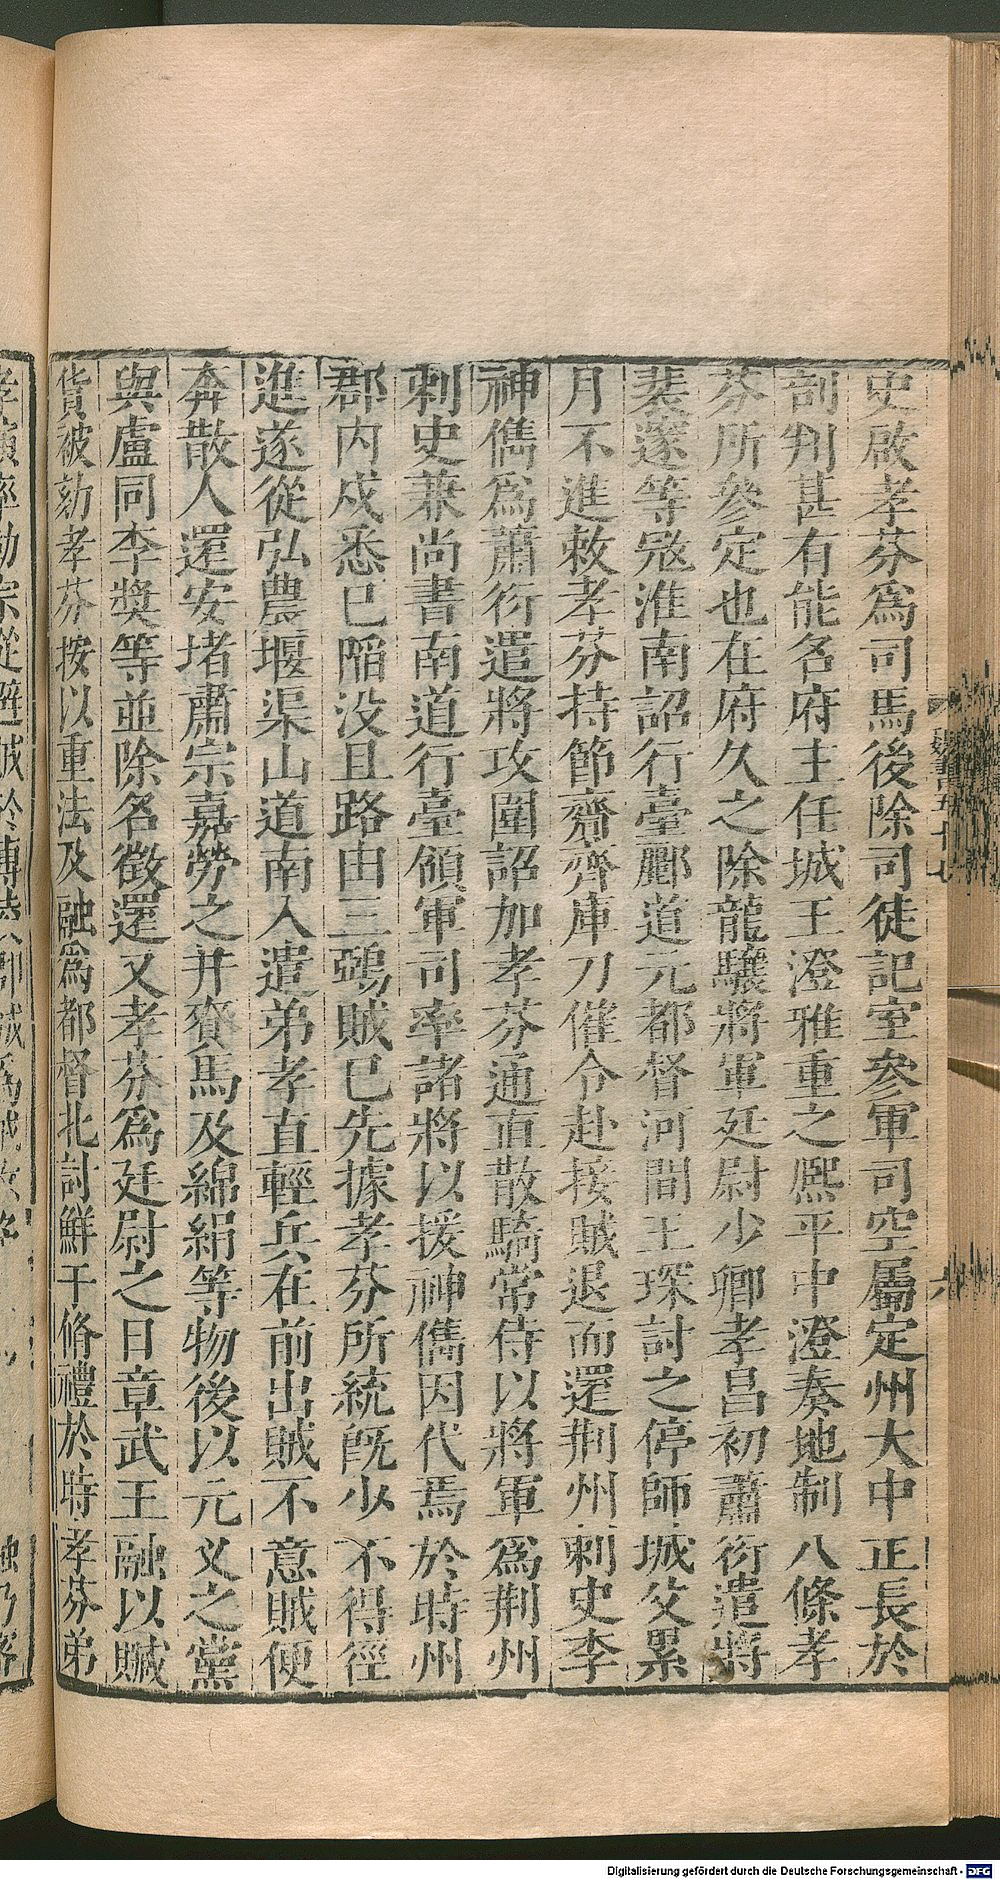 史啟孝芬爲司馬後除司徒記室參軍司空屬定州大中正長於
剖判甚有能名府主任城王澄雅重之熈平中澄奏地制八條孝
芬所參定也在府久之除龍驤將軍廷尉少卿孝昌初蕭衍遣將
裴邃等宼淮南詔行臺酈道元都督河間王琛討之停師城父累
月不進敕孝芬持節齎齊庫刀催令赴接賊退而還荆州刺史李
神儁爲蕭衍遣將攻圍詔加孝芬通直散騎常侍以將軍爲荆州
刺史兼尚書南道行臺領軍司率諸將以援神儁因代焉於時州
郡内戍悉已陷没且路由三鵶賊已先據孝芬所統旣少不得徑
進遂從弘農堰渠山道南入遣弟孝直輕兵在前出賊不意賊便
奔散人還安堵肅宗嘉勞之并賚馬及綿絹等物後以元义之黨
與盧同李奬等並除名徵還又孝芬爲廷尉之日章武王融以贓
貨被劾孝芬按以重法及融爲都督北討鮮于脩禮於時孝芬弟
魏書五十七
六
Digitalisierung gefördert durch die Deutsche Forschungsgemeinschaft - DFG